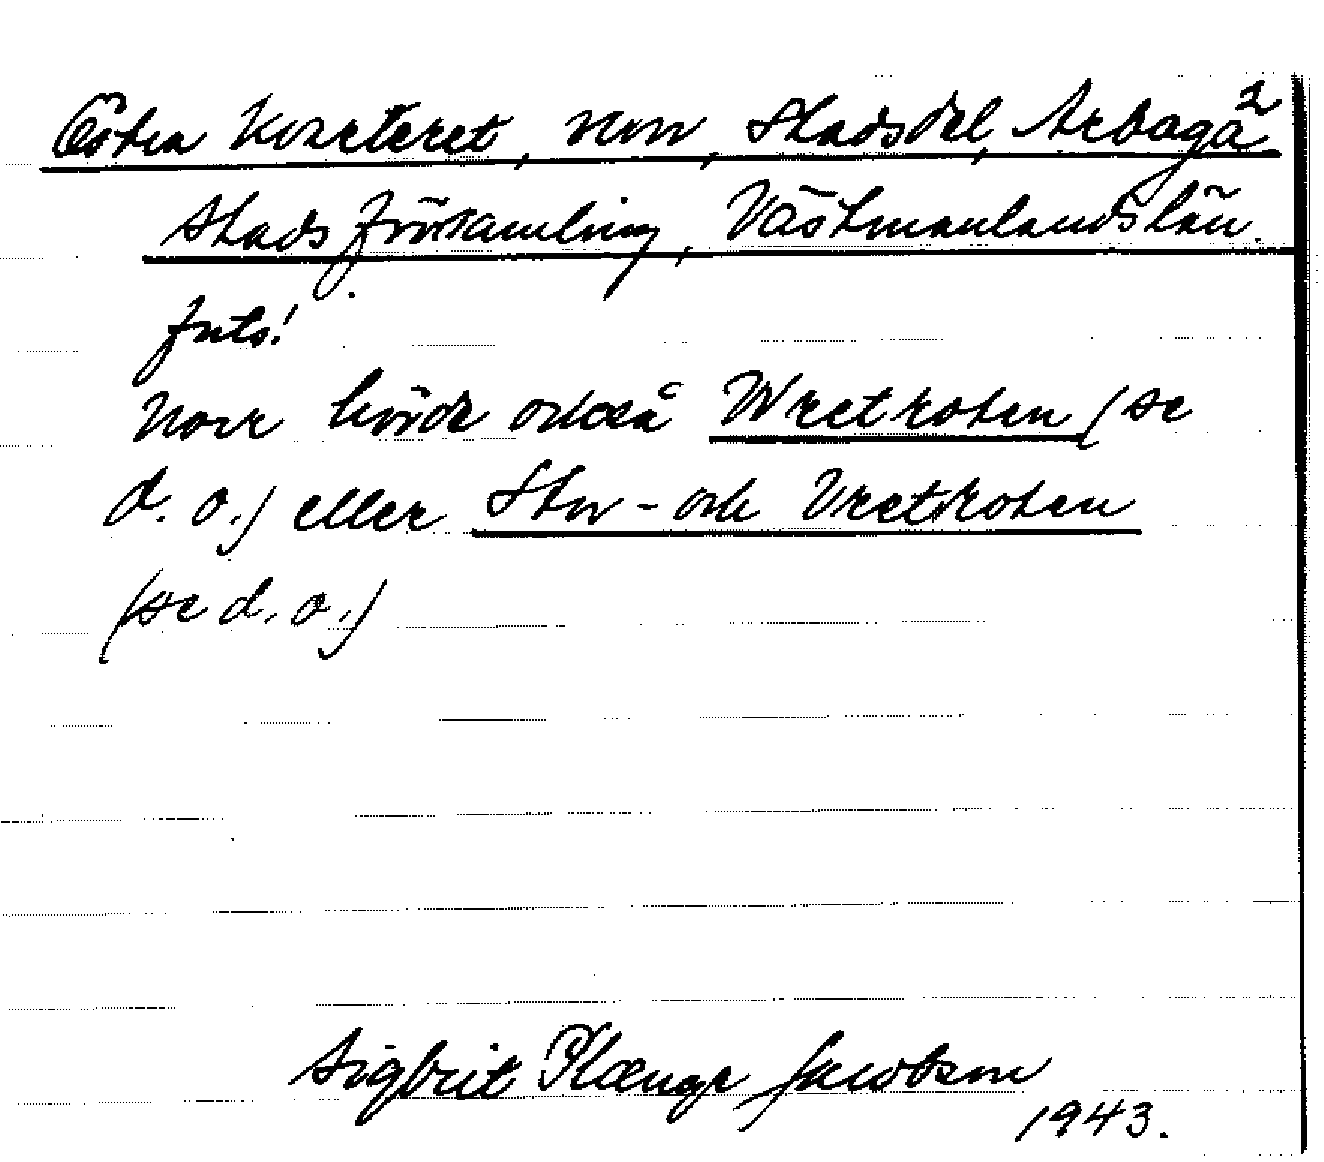 Östra Kvarteret, norr, Stadsdel, Arboga 2
Stadsförsamling, Västmanlands län.
forts!
Norr hörde också Wretroten (se
d. o.) eller Stor- och Vretroten
(se d. o.)
Sigbrit Plænge Jacobson
1943.